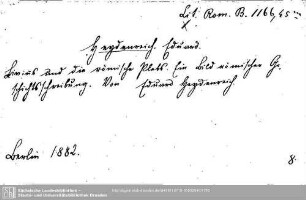 Lit. Rom. B. 1166,45 m
Heydenreich, Eduard.
Livius und die römische Plebs. Ein Bild römischer Ge-
schichtsschreibung. Von Eduard Heydenreich.
Berlin 1882.
8.
Sächsische Landesbibliothek -
Staats- und Universitätsbibliothek Dresden